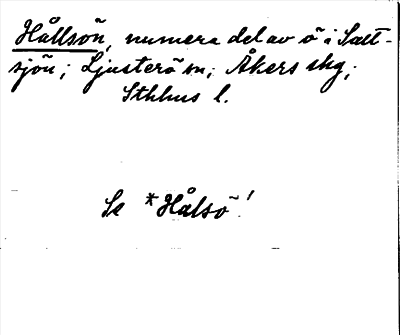 Hållsön, numera del av ö i Salt-
sjön; Ljusterö sn; Åkers skg;
Sthlms l.
Se *Hålsö!